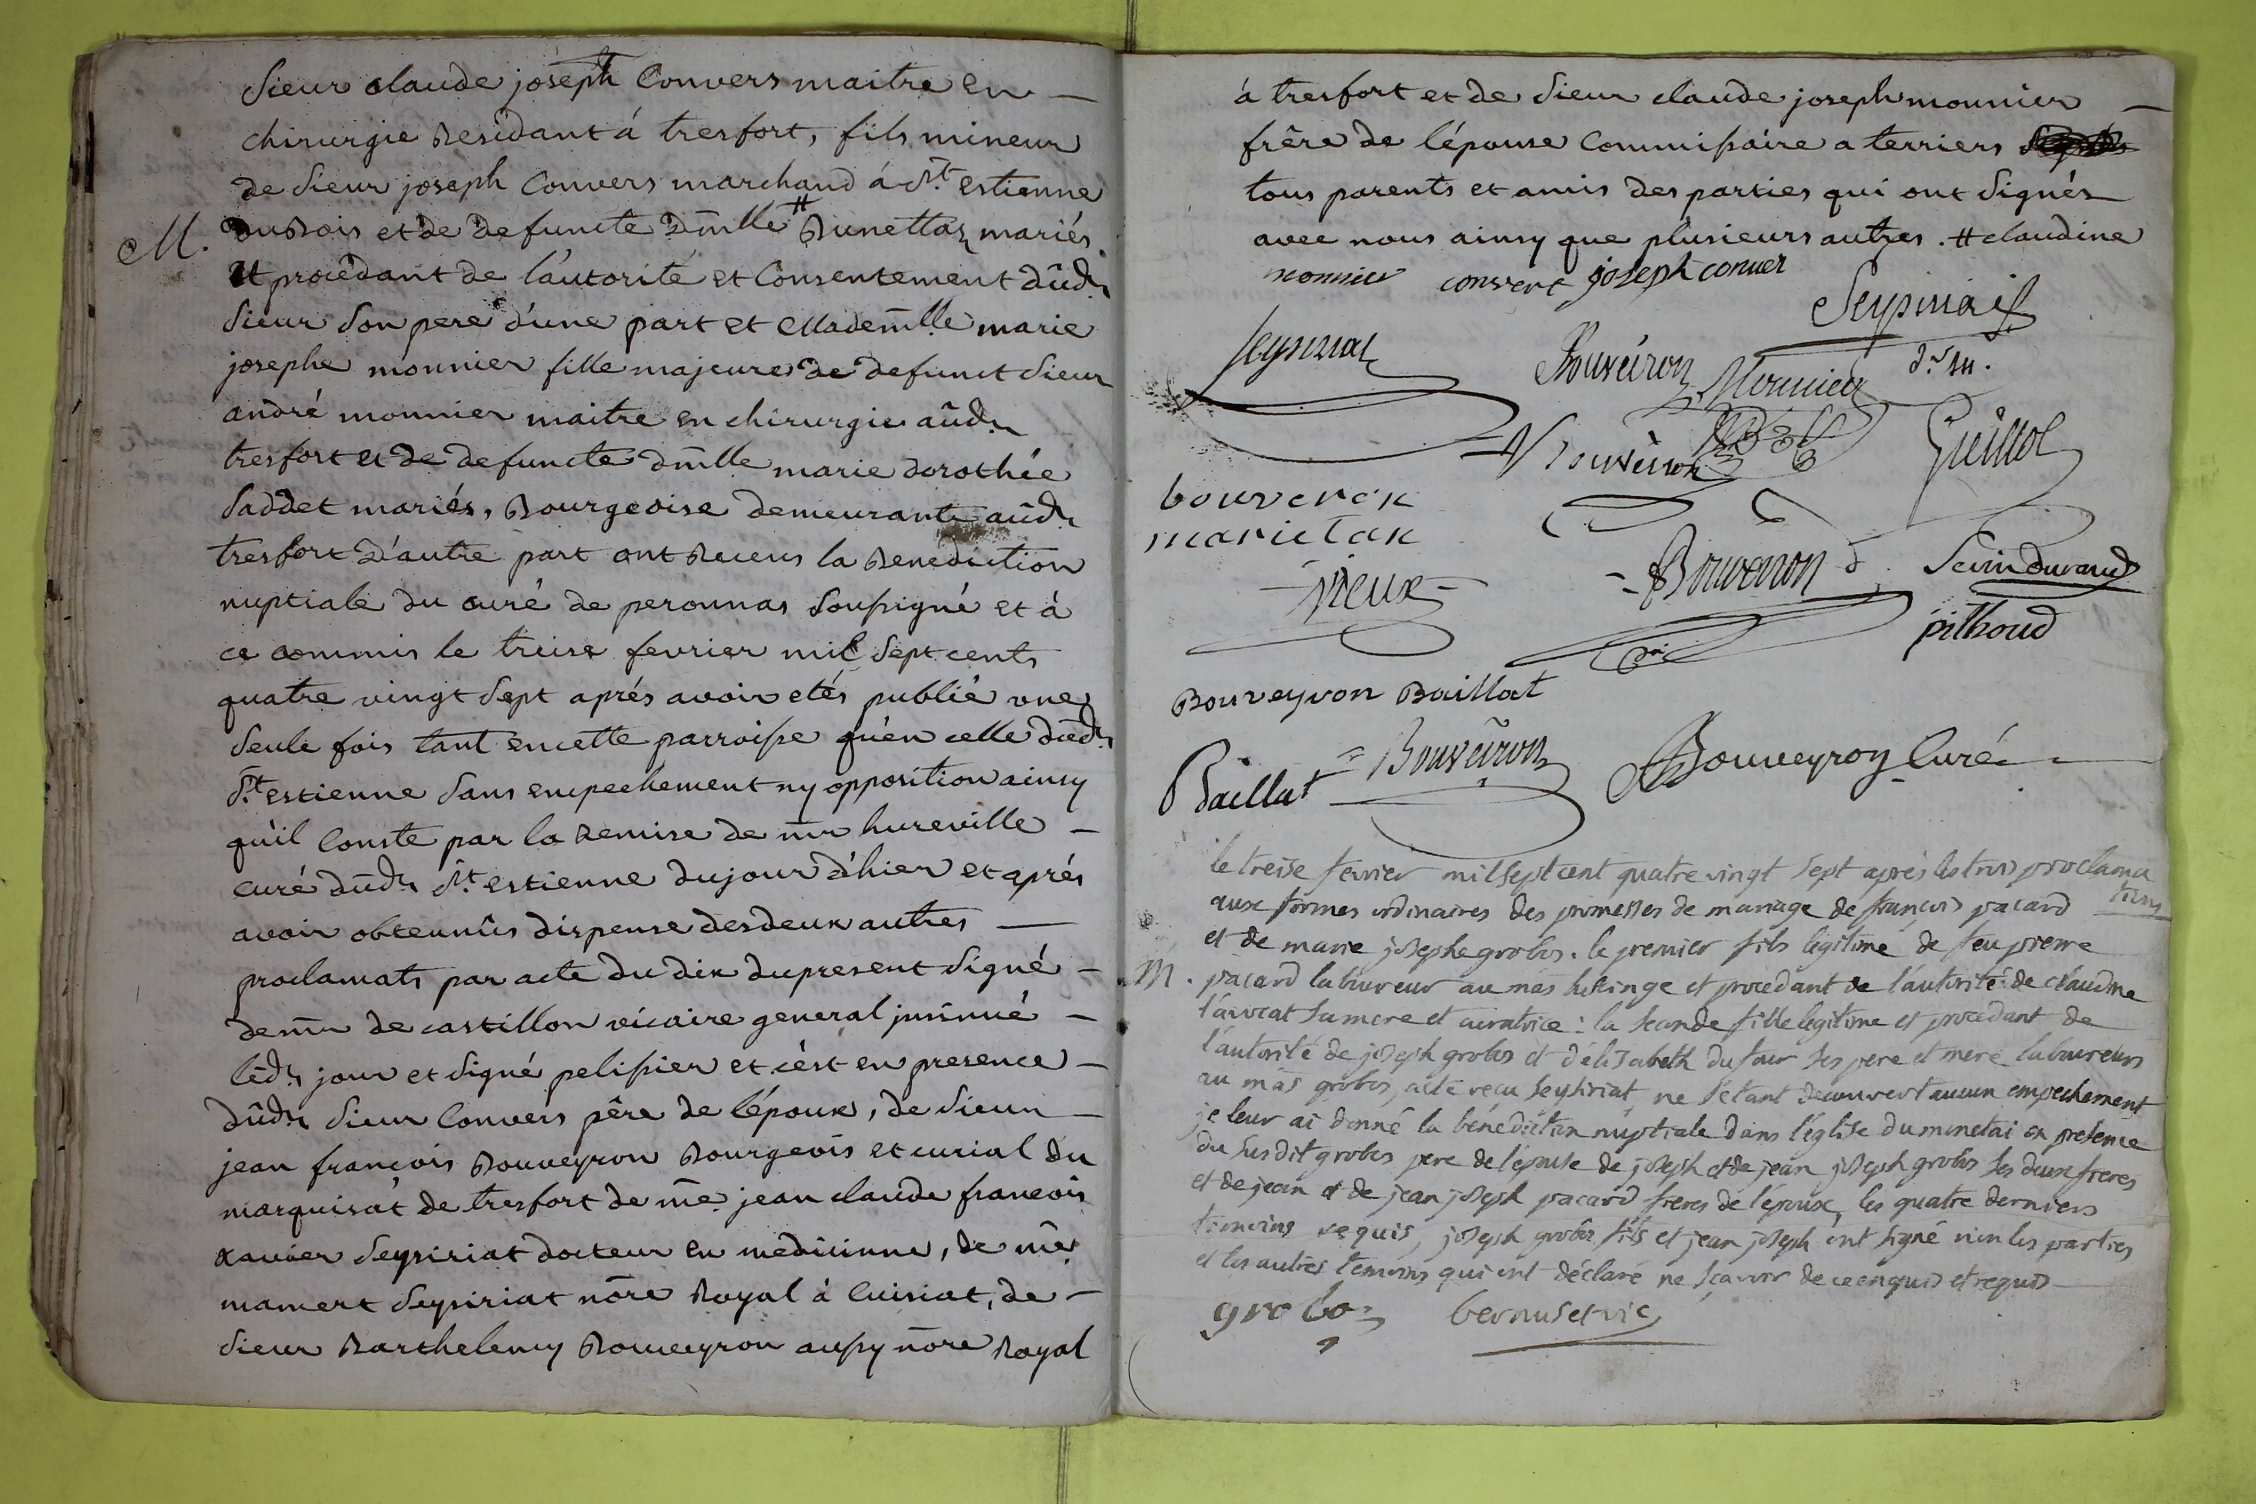 Sieur claude joseph Convers maitre en
chirurgie Residant á tresfort, fils mineur
de Sieur joseph Convers marchand á St. estienne
duBois et de defuncte dmlle # Brunettaz mariés
M.
Et procédant de l'autorité et Consentement dûdt
Sieur Son pere d'une part et Mademlle marie
josephe monnier fille majeure de defunct Sieur
andré monnier maitre en chirurgie aûdt
tresfort et de defuncte dmlle marie dorothée
Saddet mariés, Bourgeoise demeurante aûdt
tresfort d'autre part ont Receus la Benediction
nuptiale du curé de peronnas Soussigné et à
ce commis le treise fevrier mil Sept cents
quatre vingt Sept aprés avoir etés publié une
Seule fois tant en cette parroisse qu'en celle dûdt
St. estienne Sans empechement ny opposition ainsy
qu'il Conste par la Remise de mr hureville
curé dûdt St. estienne du jour d'hier et aprés
avoir obtenûs dispense des deux autres
proclamats par acte du dix du present Signé
de mr de castillon vicaire general jnsinué
lêdt jour et Signé pelissier et c'est en presence
dûdt Sieur Convers pêre de l'époux, de Sieur
jean francois Bouveyron Bourgeois et curial du
marquisat de tresfort de me jean claude francois
xavier Seysiriat docteur en medicinne, de me
mamert Seysiriat nore Royal à Cuisiat, de
Sieur Barthelemy Bouveyron aussy nore Royal
á tresfort et de Sieur claude joseph monnier
frêre de l'épouse Commissaire a terriers
tous parents et amis des parties qui ont Signés
avec nous ainsy que plusieurs autres. # claudine
monnier convert joseph conver
Seysiriat
Seysiriat Bouveiron Monnier d. m.
Bouveiron Guillot
bouveron
marietan
vieux Bouveiron Sevin durand
pithoud
Bouveyron Baillat
Baillat Bouveiron Bouveyron Curé
le treise fevrier mil sept cent quatre vingt sept après les trois proclama
tions
aux formes ordinaires des promesses de mariage de françois pacard
et de marie josephe grobos. le premier fils légitime de feu pierre
M. pacard laboureur au mas hetinge et procedant de l'autorité de claudine
l'avocat sa mere et curatrice : la seconde fille legitime et procedant de
l'autorité de joseph grobos et d'elisabeth dufour ses pere et mere laboureurs
au mas grobos, acte reçu seysiriat ne s'étant découvert aucun empechement
je leur ai donné la bénédiction nuptiale dans l'église du monetai en presence
du susdit grobos pere de l'épouse de joseph et de jean joseph grobos ses deux freres
et de jean et de jean joseph pacard freres de l'époux, les quatre derniers
temoins requis, joseph grobos fils et jean joseph ont signé non les parties
et les autres temoins qui ont déclaré ne sçavoir de ce enquis et requis
groboz bernuset vic